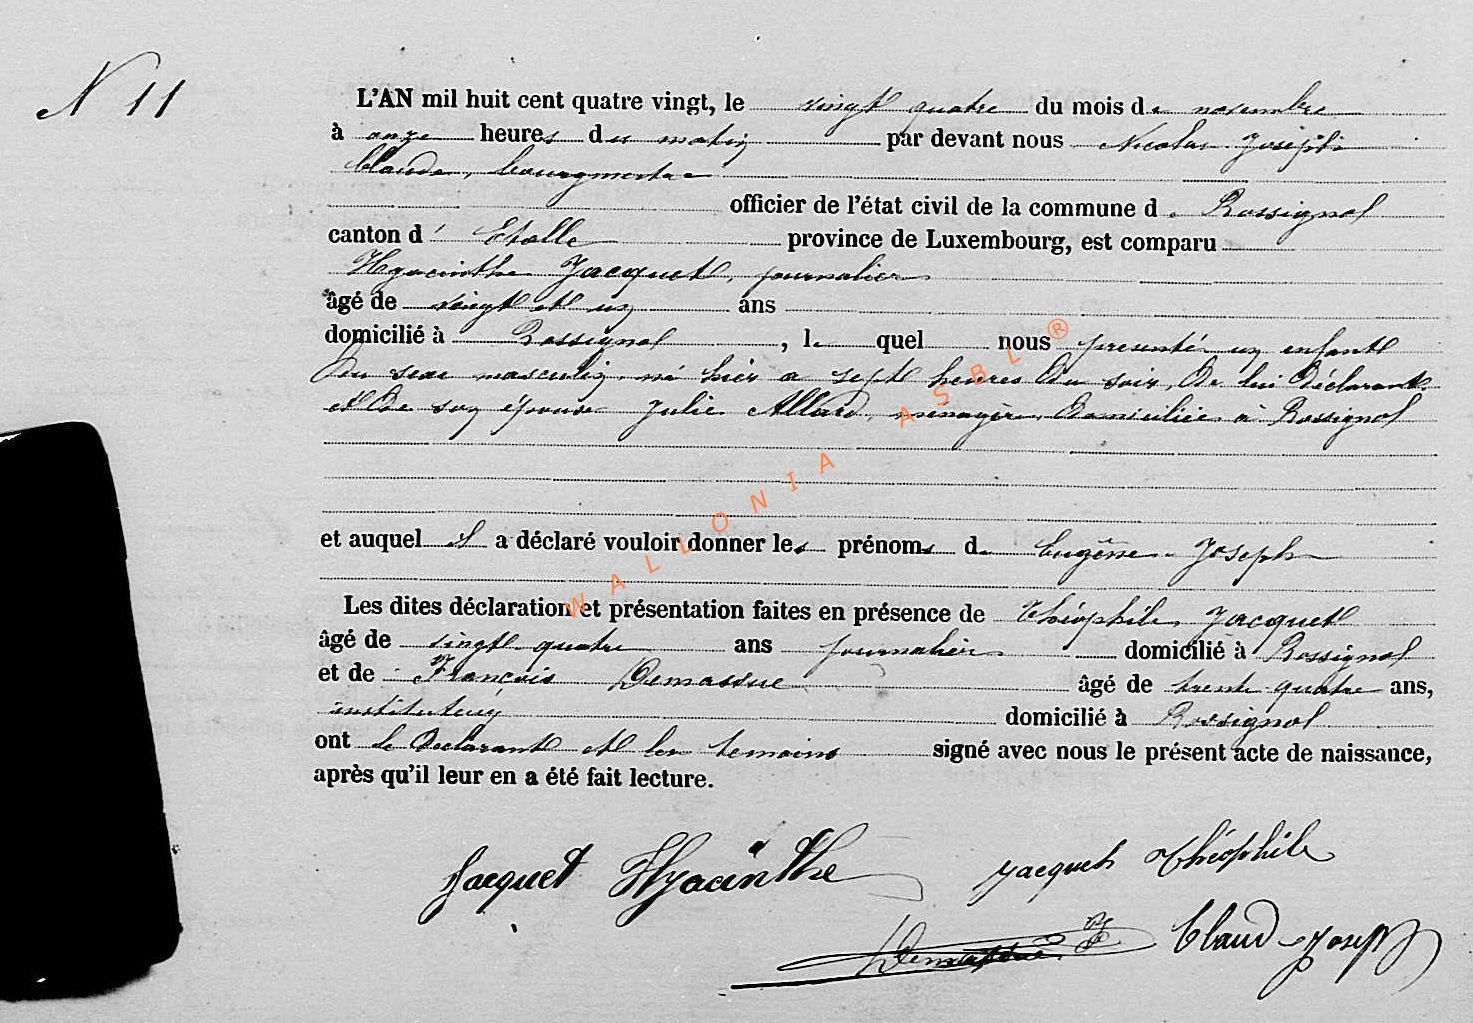 N 11
L'AN mil huit cent quatre vingt, le vingt quatre du mois de novembre
à onze heures du matin par devant nous Nicolas Joseph
Claude, bourgmestre
officier de l'état civil de la commune de Rossignol
canton d'Etalle province de Luxembourg, est comparu
Hyacinthe Jacquet, journalier
âgé de vingt et un ans
domicilié à Rossignol, le quel nous présenté un enfant
du sexe masculin, né hier a sept heures du soir, de lui déclarant
et de son épouse Julie Allard, ménagère, domiciliée à Rossignol
et auquel il a déclaré vouloir donner les prénoms de Eugène Joseph
Les dites déclaration et présentation faites en présence de Théophile Jacquet
âgé de vingt quatre ans journalier domicilié à Rossignol
et de François Demassue âgé de trente quatre ans,
instituteur domicilié à Rossignol
ont le déclarant et les temoins signé avec nous le présent acte de naissance,
après qu'il leur en a été fait lecture.
Jacquet Hyacinthe Jacquet Théophile
Demassue F Claude Joseph
WALLONIA ASBL ®